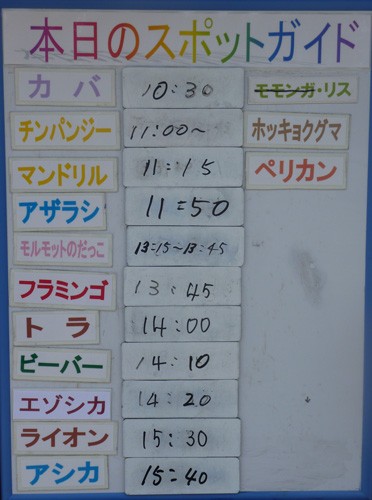 本日のスポットガイド
カバ 10:30 モモンガ・リス
チンパンジー 11:00～ ホッキョクグマ
マンドリル 11:15 ペリカン
アザラシ 11:50
モルモットのだっこ 13:15～13:45
フラミンゴ 13:45
トラ 14:00
ビーバー 14:10
エゾシカ 14:20
ライオン 15:30
アシカ 15:40